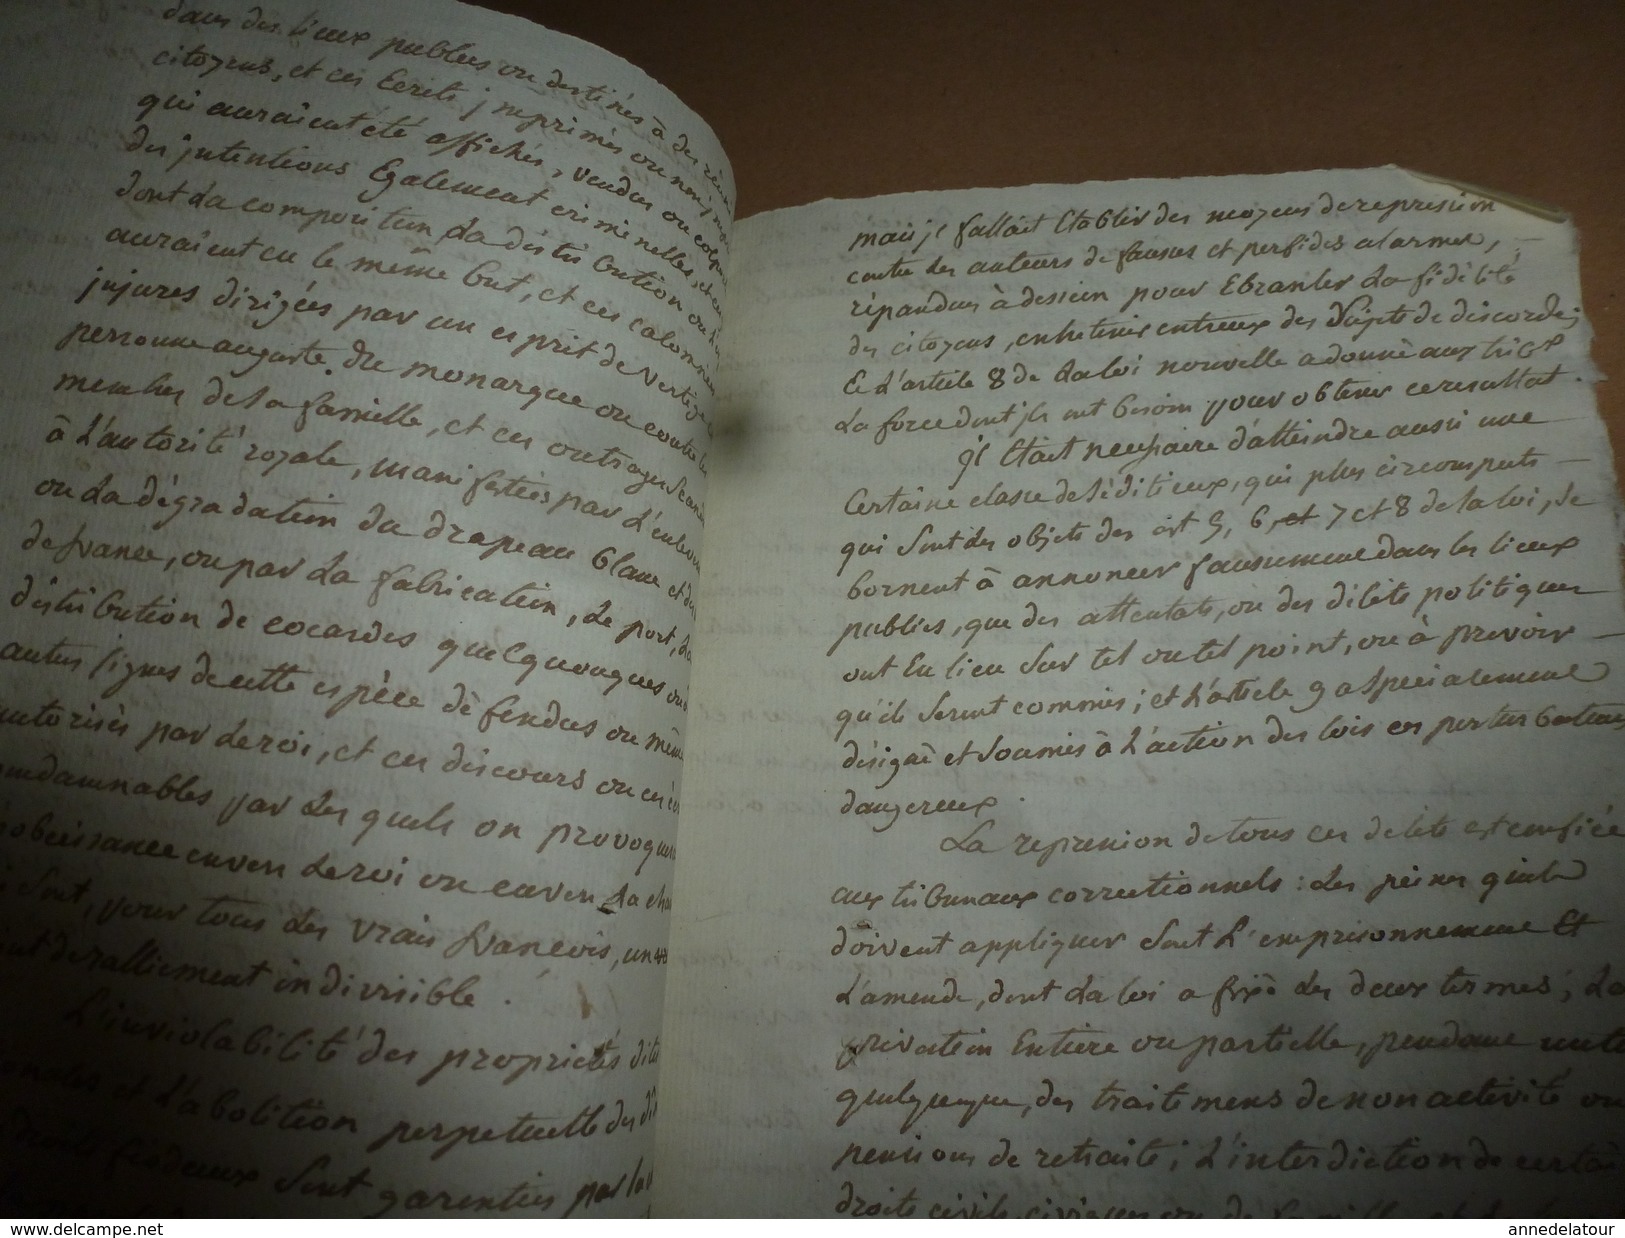 dans des lieux publics ou destinés à des réun
citoyens, et ces Ecrits jmprimés ou non j
qui auraient eté affichés, vendus ou colpor
des jntentions Egalement criminelles, et
dont la composition, la distribution ou
auraient eu le même but, et ces calomnies
jnjures dirigées par un esprit de vertige
personne auguste du monarque ou contre les
membres de sa famille, et ces outrages
à L'autorité royale, manifestées par L'enlevem
ou La dégradation du drapeau blanc et des
de france, ou par La fabrication, Le port, La
distribution de cocardes quelquonques ou d
autres signes de cette espèce défendus ou même
autorisés par Le roi, et ces discours ou ces
condamnables par Les quels on provoque
obeissance envers Le roi ou envers La cha
Sont, pour tous Les vrais francois, un
de ralliement indivisible.
L'inviolabilité des propriétés dites
et L'abolition perpetuelle des
droits feodaux Sont garanties par la
mais jl fallait Etablir des moyens de repression
contre les auteurs de fausses et perfides alarmes,
répandues à dessein pour Ebranler La fidélité
des citoyens, entretenir entreux des Sujets de discorde;
E L'article 8 de La loi nouvelle a donné aux tribx
La force dont jls ont besoin pour obtenir ce resultat.
jl Etait necessaire d'atteindre aussi une
Certaine classe de Séditieux, qui plus circonspects
qui Sont les objets des art 5, 6, et 7 et 8 de la loi, Se
bornent à annoncer faussement dans les lieux
publics, que des attentats, ou des délits politiques
ont Eu lieu Sur tel ou tel point, ou à prevoir
qu'ils Seront commis; et L'article 9 a Specialement
désigné et Soumis à L'action des lois ces perturbateurs
dangereux.
La repression de tous ces delits est confiée
aux tribunaux correctionnels: Les peines quils
doivent appliquer Sont L'emprisonnement Et
L'amende, dont La loi a fixé Les deux termes; La
privation Entiere ou partielle, pendant un te
quelquonque, des traitemens de non activité ou
pensions de retraite; L'interdiction de certai
droits civils, civiques ou de famille et
www.delcampe.net
annedelatour